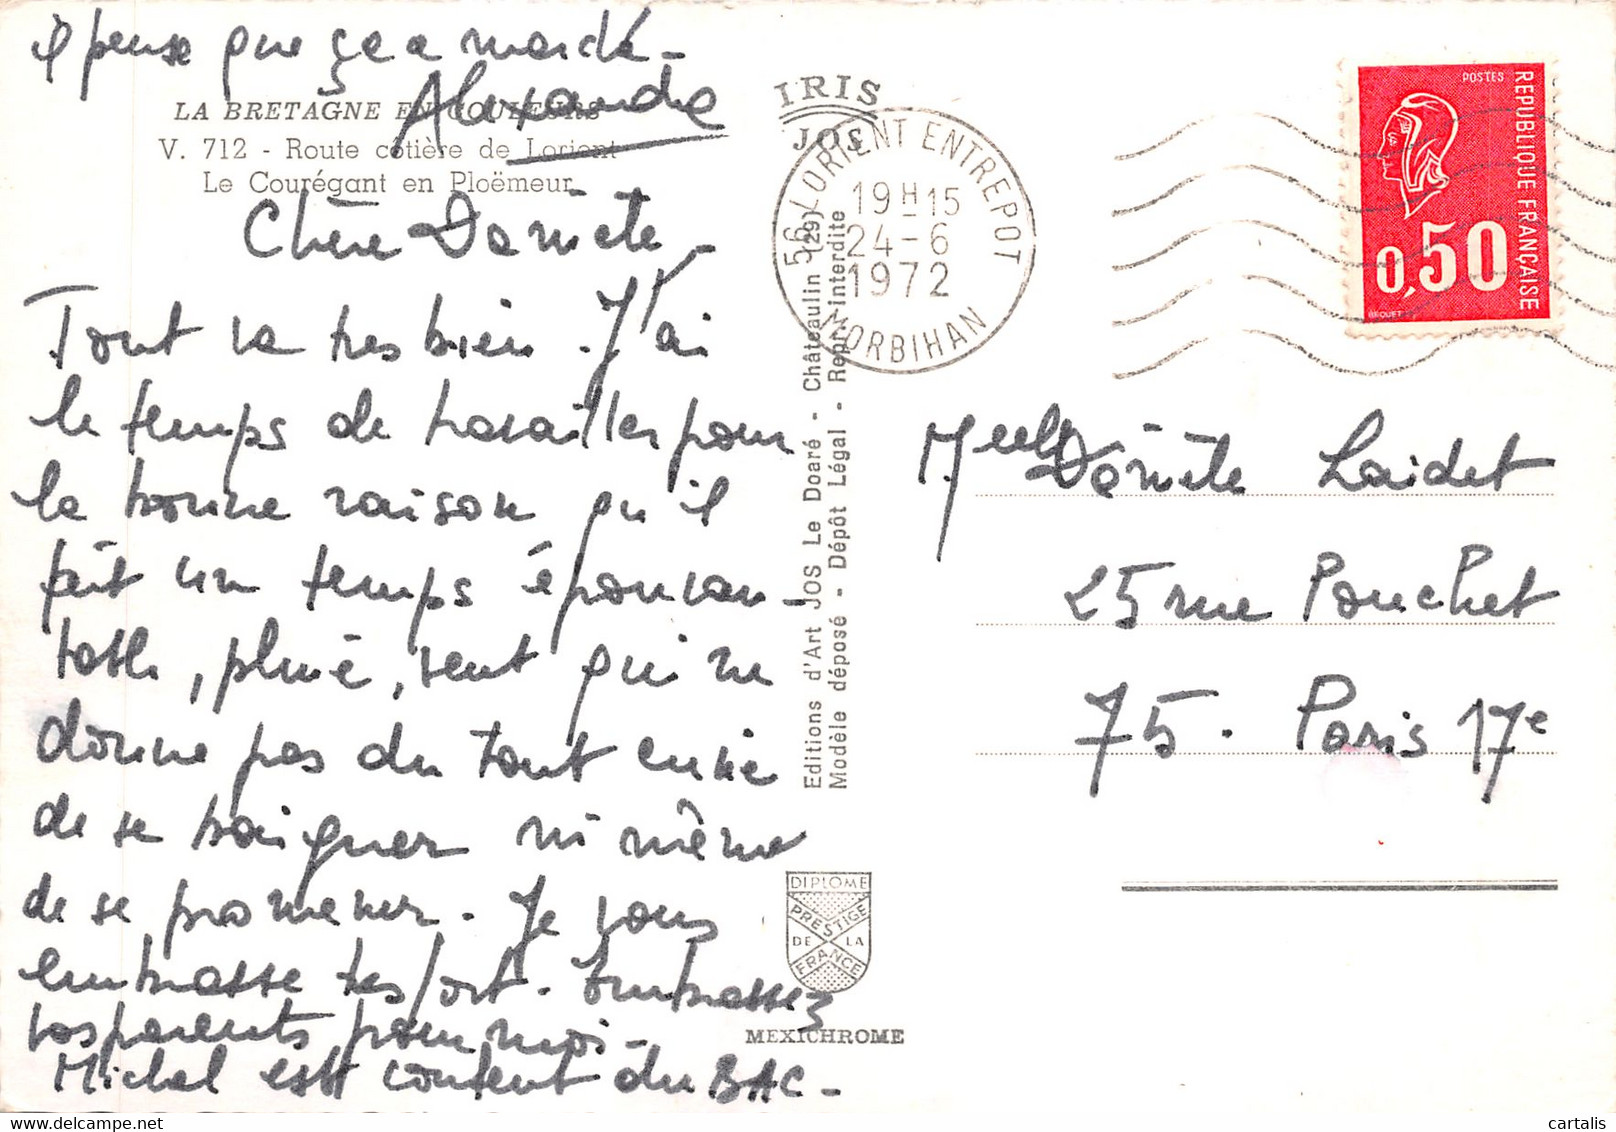 il pense que ça a marché -
Alexandre
LA BRETAGNE EN COULEURS
V. 712 - Route côtière de Lorient
Le Courégant en Ploëmeur
Chère Danièle -
Tout va très bien. J'ai
le temps de travailler pour
la bonne raison qu'il
fait un temps épouvan-
table, pluie, vent qui ne
donne pas du tout envie
de se baigner ni même
de se promener. Je vous
embrasse très fort. Embrassez
vos parents pour moi -
Michel est content du BAC -
IRIS
JOS
Editions d'Art JOS Le Doaré - Châteaulin (29)
Modèle déposé - Dépôt Légal - Repr. interdite
DIPLOME
PRESTIGE
DE LA
FRANCE
MEXICHROME
56 LORIENT ENTREPOT
19H15
24-6
1972
MORBIHAN
POSTES
REPUBLIQUE FRANÇAISE
0,50
BEQUET
Melle Danièle Laidet
25 rue Pouchet
75. Paris 17e
cartalis